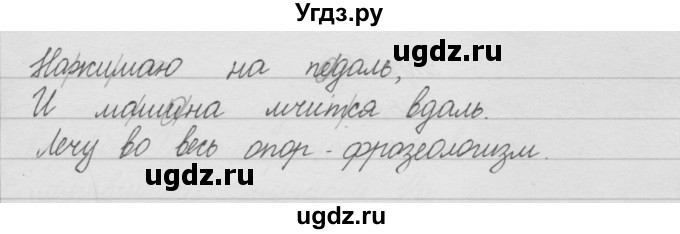 Угдз.ру
Нажимаю на педаль,
И машина мчится вдаль.
Лечу во весь опор - фразеологизм.
ugdz.ru
ugdz.ru
ugdz.ru
ugdz.ru